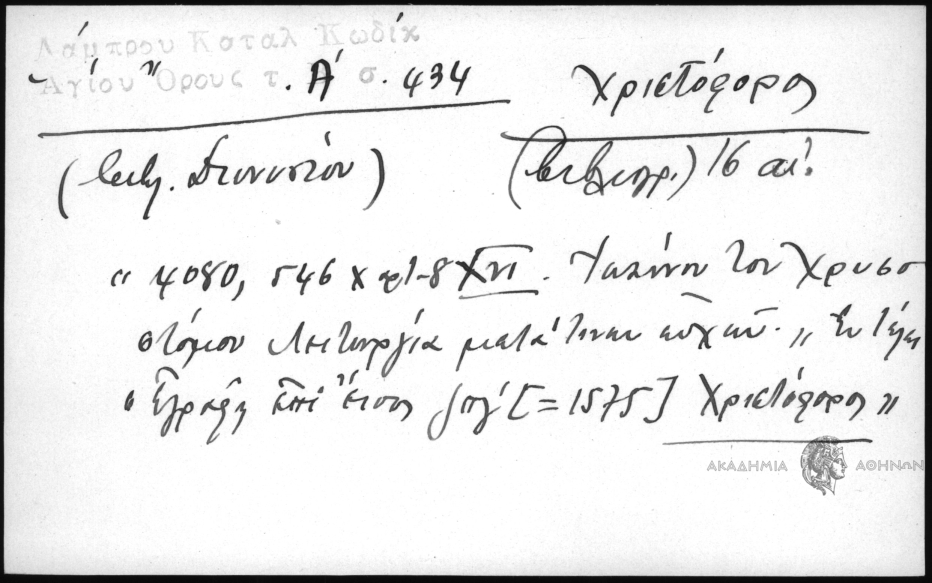 Λάμπρου Καταλ Κωδίκ
Ἁγίου Ὄρους τ. Α' σ. 434
Χριστόφορος
(βιβλ. Διονυσίου)
(βιβλιογρ.) 16 αἰ.
" 4080, 546 χαρτ-8 XVI. Ἰωάννου τοῦ Χρυσο
στόμου Λειτουργία μετά τινων εὐχῶν. " Ἐν τέλει
" Ἐγράφη ἐπί ἔτους ζπγ' [=1575] Χριστόφορος "
ΑΚΑΔΗΜΙΑ ΑΘΗΝΩΝ